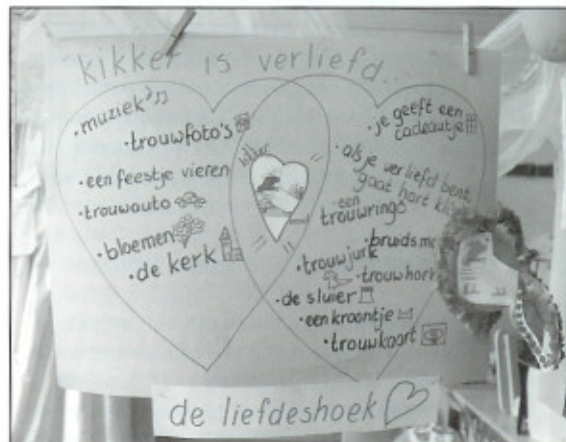 "kikker is verliefd...
• muziek
• trouwfoto's
• een feestje vieren
• trouwauto
• bloemen
• de kerk
kikker
• je geeft een
cadeautje
• als je verliefd bent,
gaat hart
een
trouwring
• bruids
• trouwjurk
• de sluier
• een kroontje
• trouwkaart
de liefdeshoek